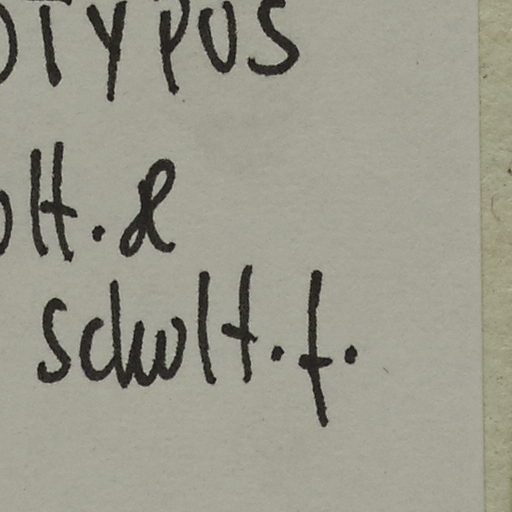 OTYPUS
olt. &
scholt. f.